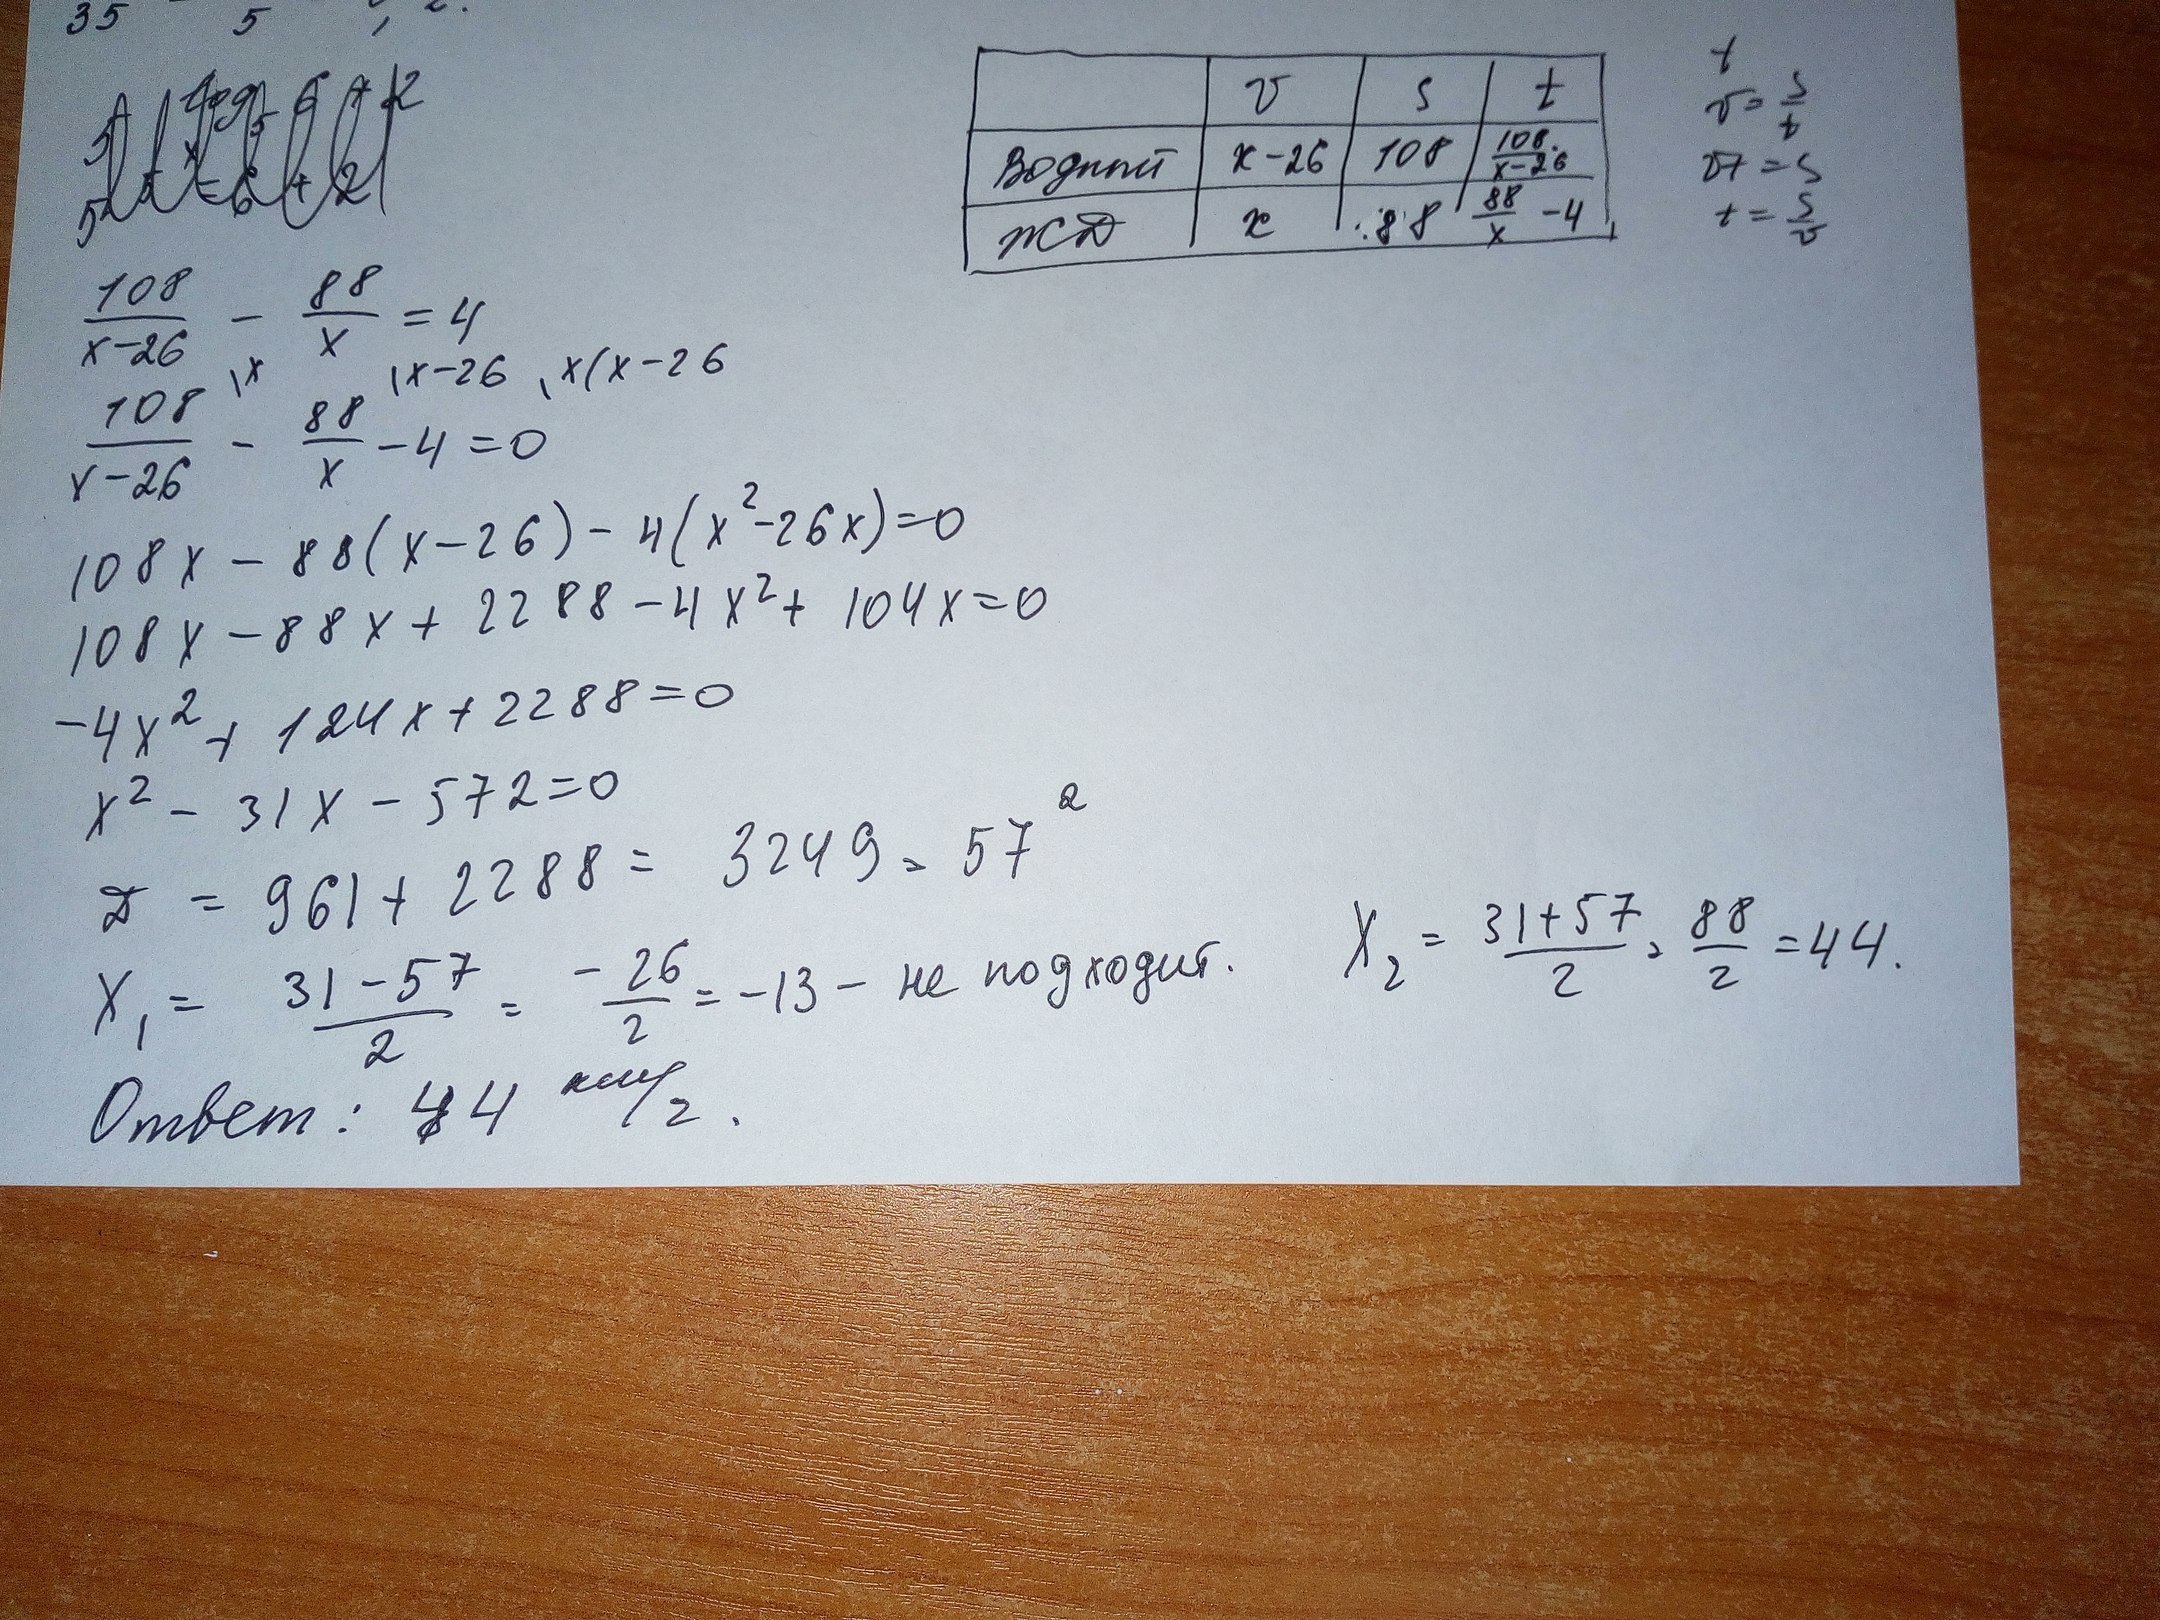 35 5 , 2.
v s t
Водный x-26 108 108/(x-26)
ЖД x 88 88/x -4
t
v = s/t
vt = s
t = s/v
108/(x-26) - 88/x = 4
108/(x-26) \x - 88/x \x-26 -4 \x(x-26 = 0
108x - 88(x-26) - 4(x²-26x) = 0
108x - 88x + 2288 - 4x² + 104x = 0
-4x² + 124x + 2288 = 0
x² - 31x - 572 = 0
D = 961 + 2288 = 3249 = 57²
X₁ = (31-57)/2 = -26/2 = -13 - не подходит.
X₂ = (31+57)/2 = 88/2 = 44.
Ответ: 44 км/г.